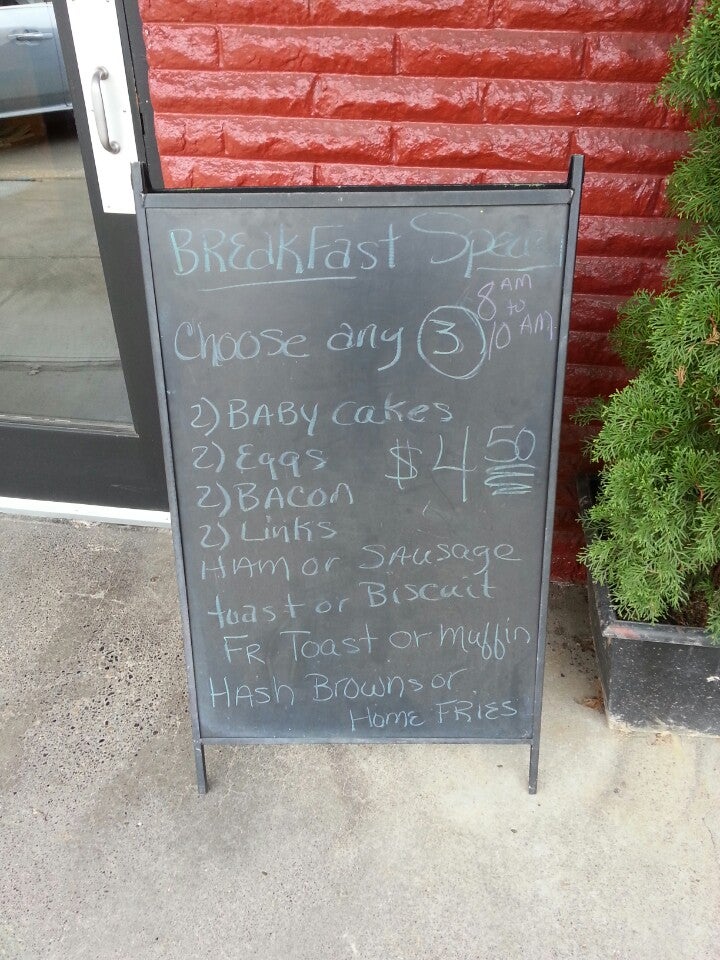 BREAKFast Special
8 AM
to
10 AM
Choose any 3
2) BABY cakes
2) Eggs
$4 50
2) BACON
2) Links
HAM or SAusage
toast or Biscuit
FR Toast or muffin
HAsh Browns or
Home FRIES